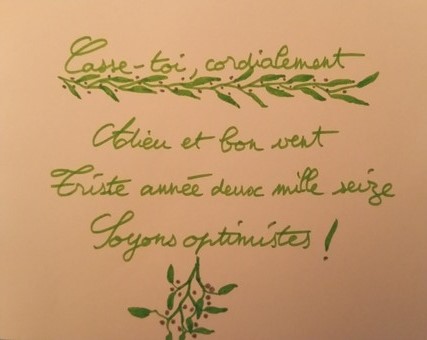 Casse-toi, cordialement
Adieu et bon vent
Triste année deux mille seize
Soyons optimistes !